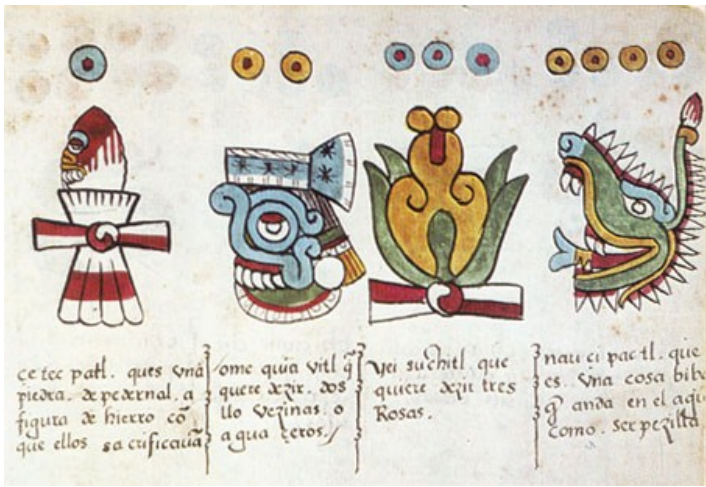 çe tec patl. ques vna
piedra. de pedernal. a
figura de hierro cõ
que ellos sacrificauã
ome quia vitl q̃
quere dezir. dos
llo vezinas. o
agua çeros.
yei suchitl que
quiere dezir tres
Rosas.
nau çi pac tl. que
es. vna cosa biba
q̃ anda en el agu
como. serpezilla